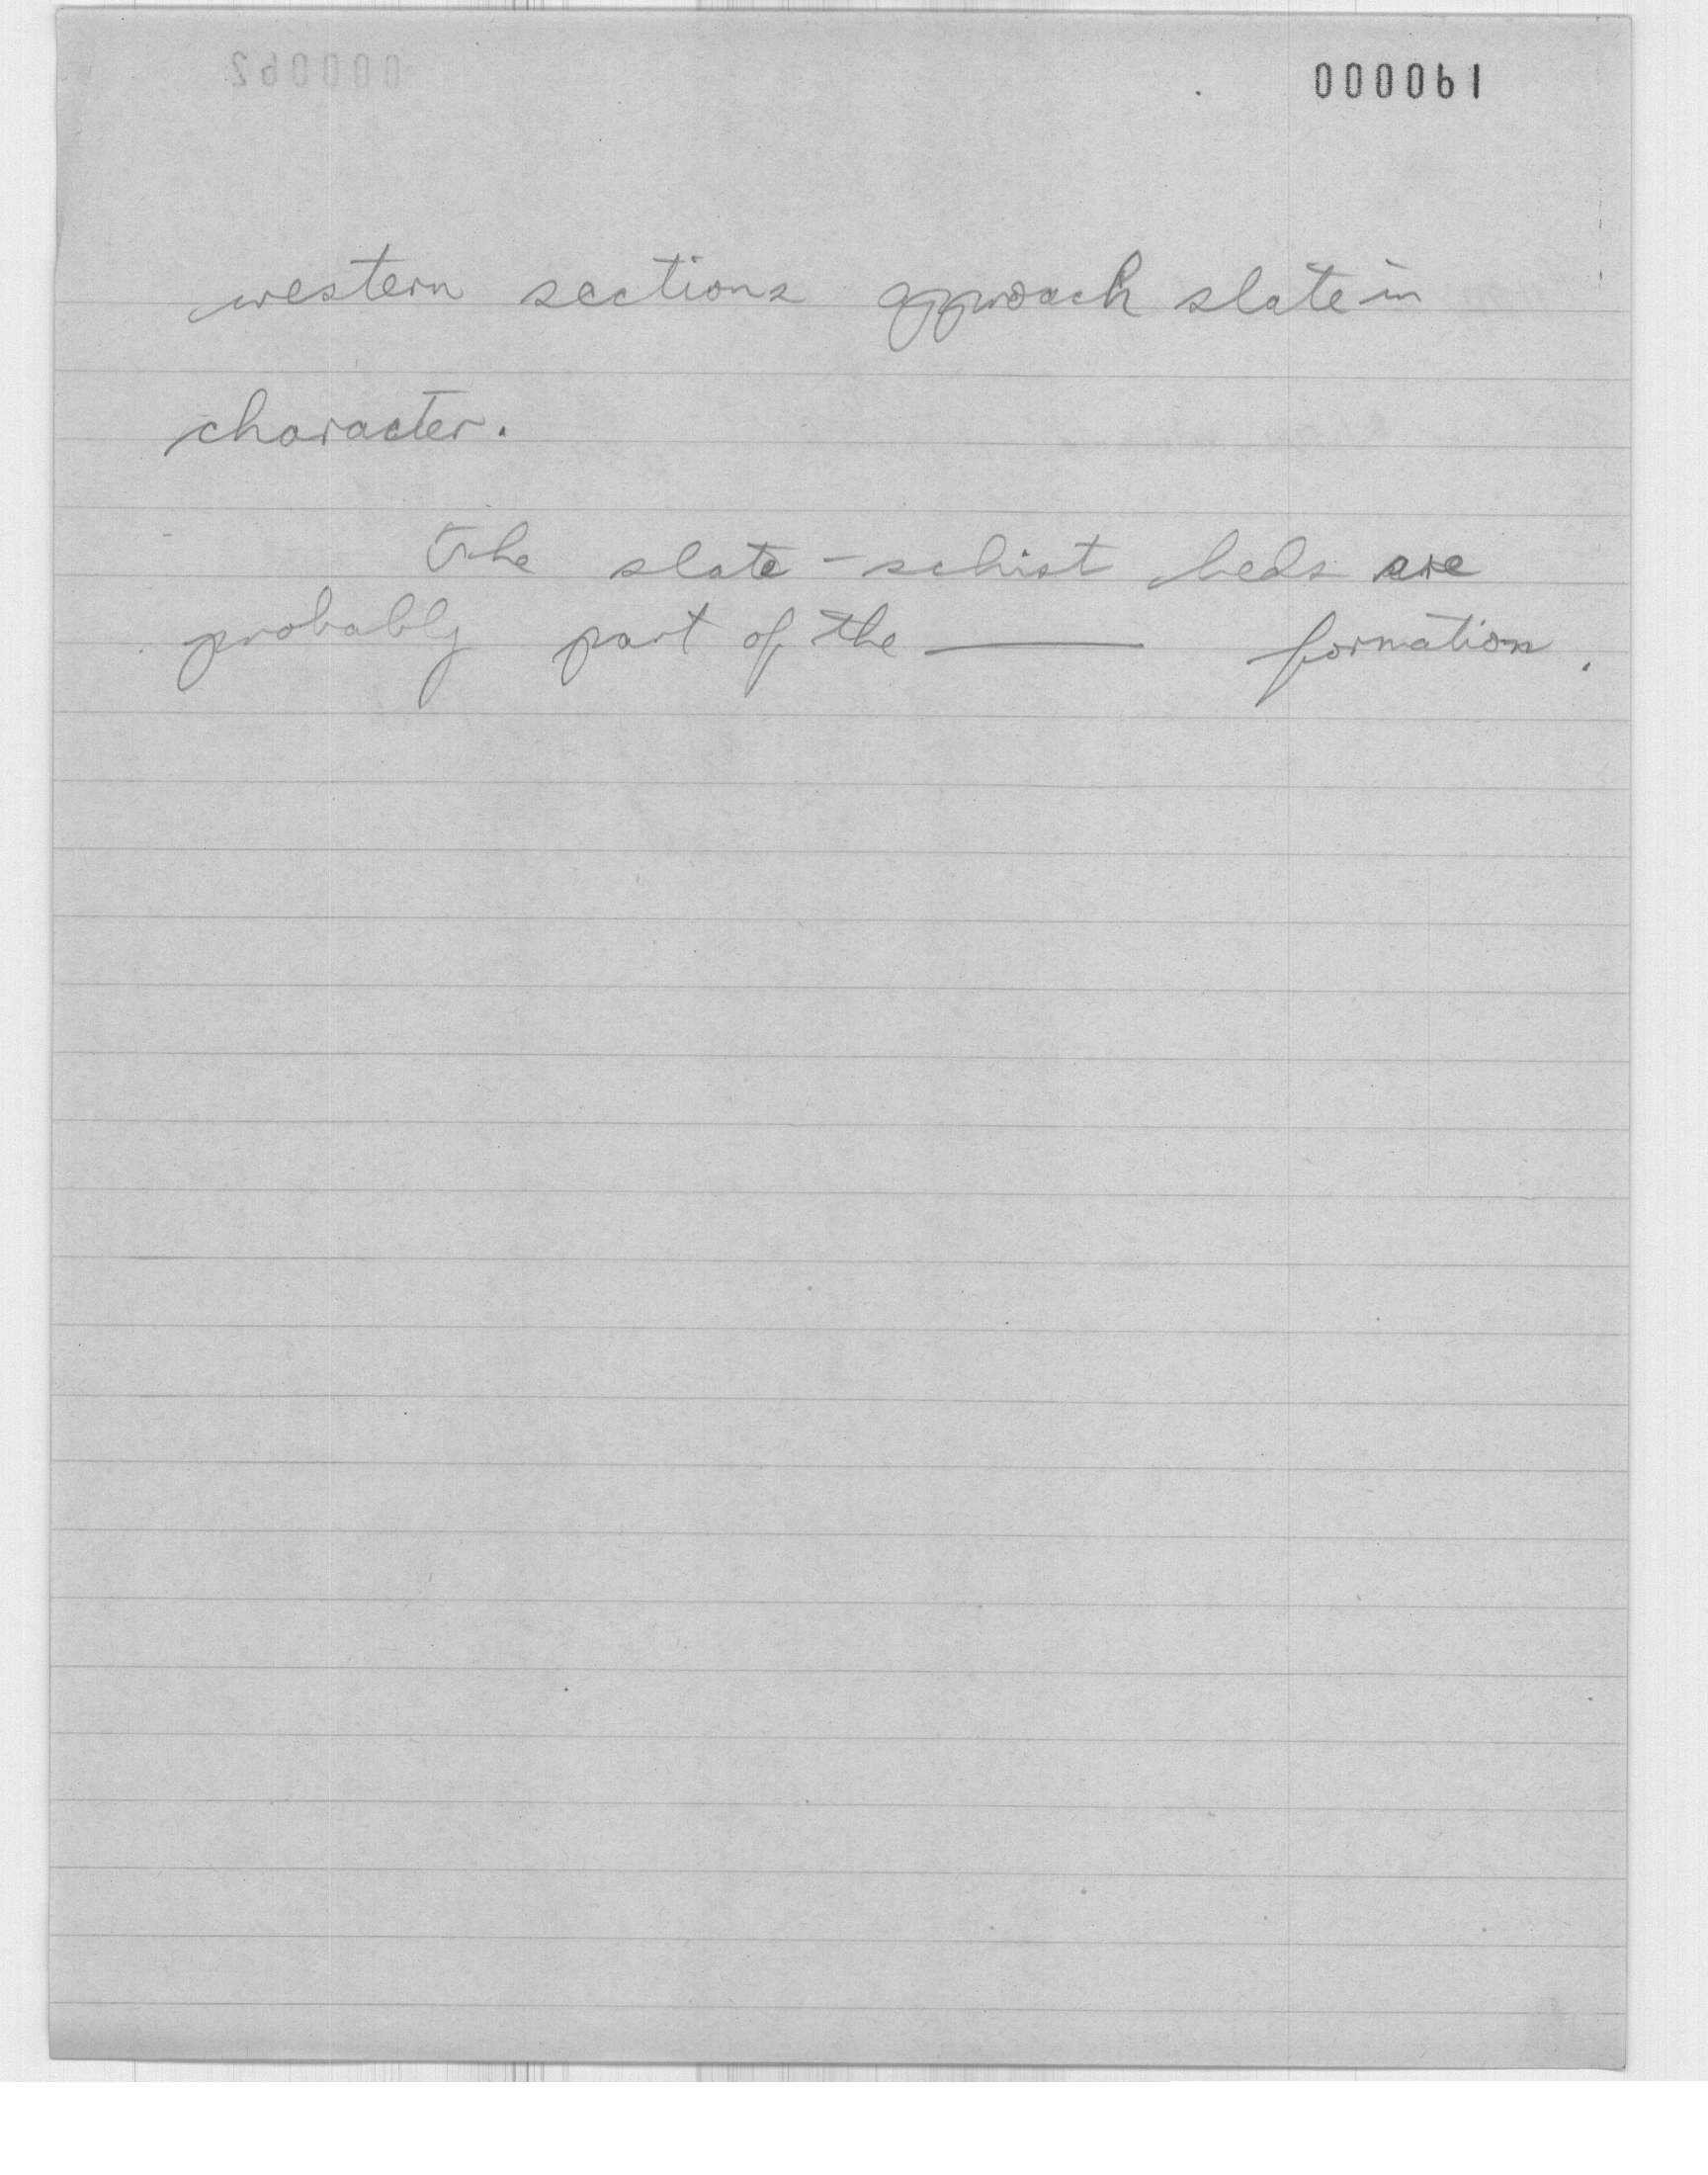 000061
western sections approach slate in
character.
The slate - schist beds are
probably part of the ——— formation.